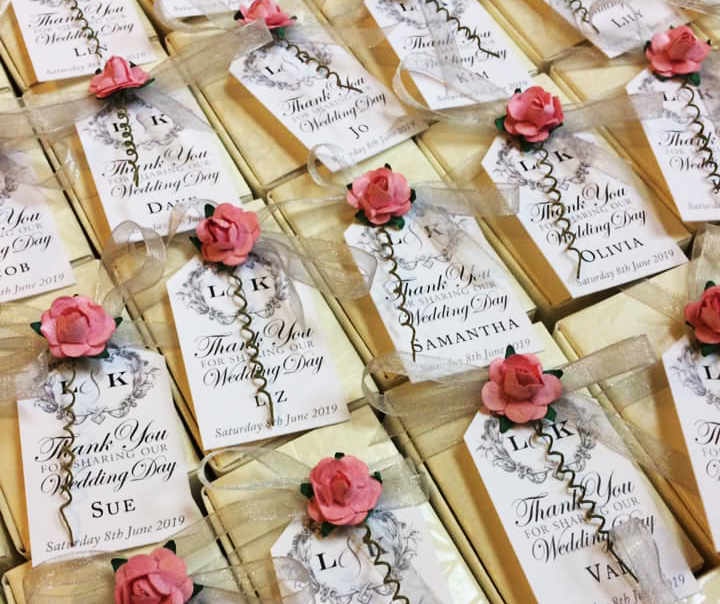 Thank You
FOR SHARING OUR
Wedding Day
LEN
Saturday 8th June 2019
Thank You
FOR SHARING OUR
Wedding Day
JO
Saturday 8th June 2019
Thank You
Wedding Day
KIM
LILA
L & K
Thank You
FOR SHARING OUR
Wedding Day
Thank You
FOR SHARING OUR
Wedding Day
L K
Thank You
FOR SHARING OUR
Wedding Day
OLIVIA
Saturday 8th June 2019
Wedding Day
OB
June 2019
L & K
Thank You
FOR SHARING OUR
Wedding Day
LIZ
Saturday 8th June 2019
L & K
Thank You
FOR SHARING OUR
Wedding Day
SAMANTHA
Saturday 8th June 2019
L & K
Thank You
FOR SHARING OUR
Wedding Day
SUE
Saturday 8th June 2019
L & K
L & K
Thank You
FOR SHARING OUR
Wedding Day
2019
L
Thank
FOR
Wedding